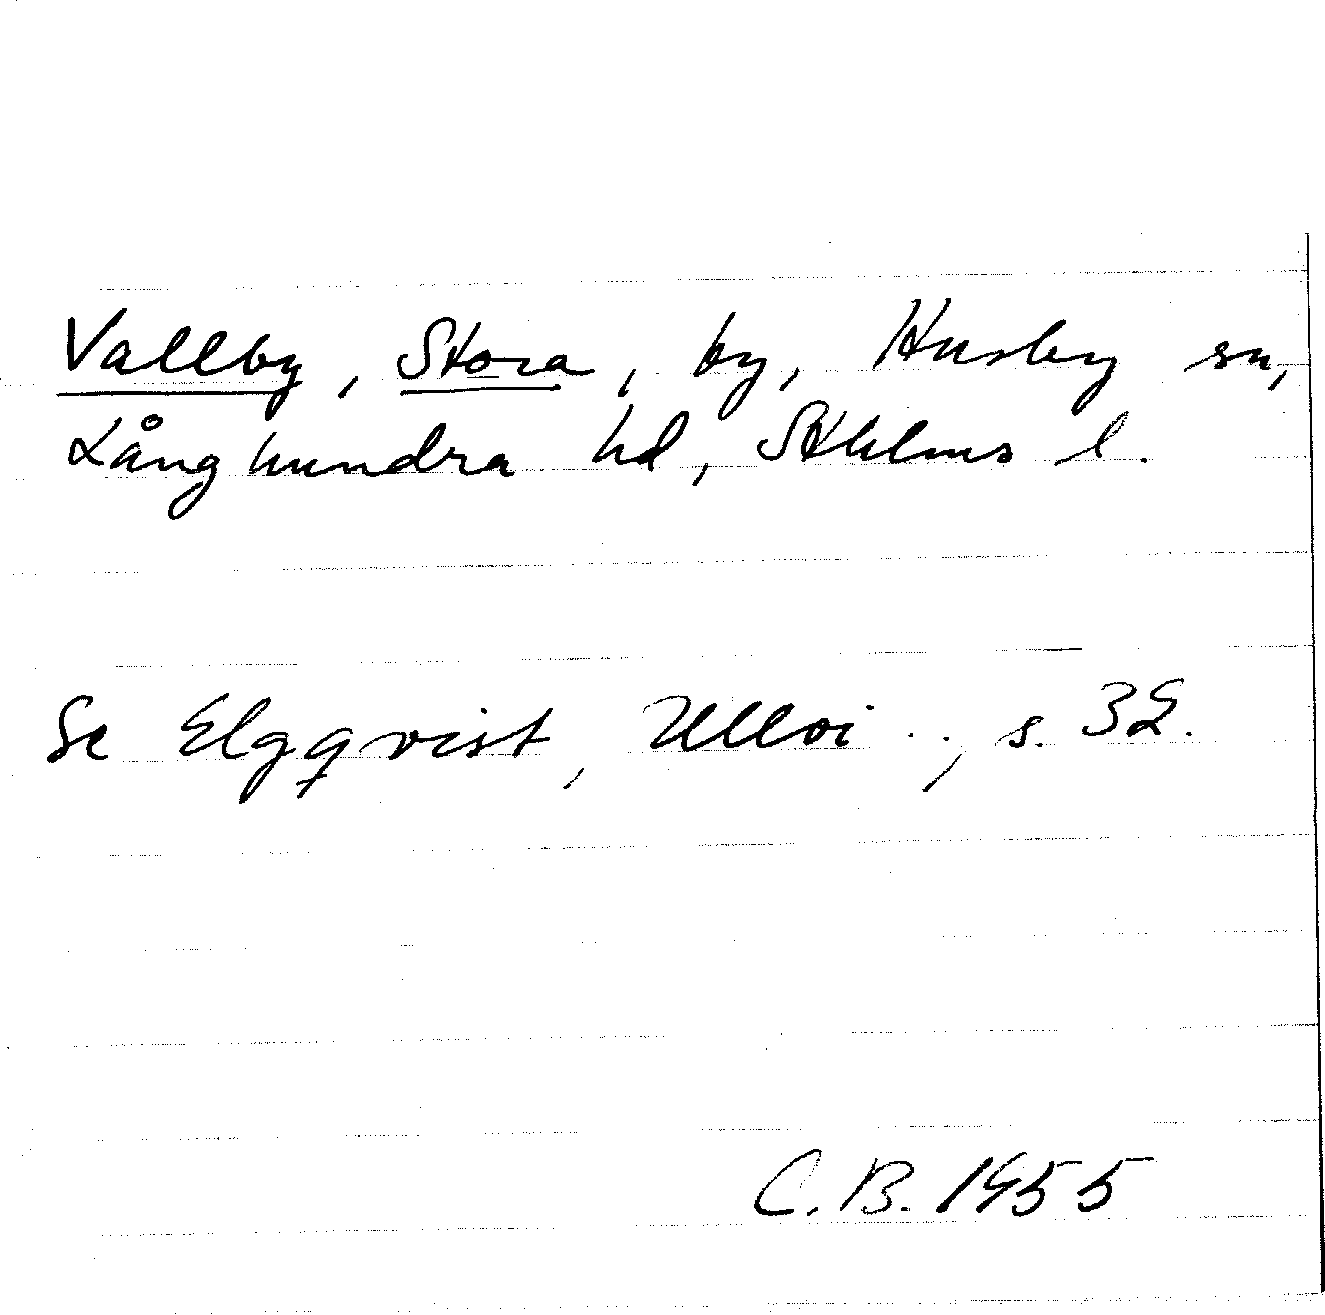 Vallby, Stora, by, Husby sn,
Långhundra hd, Sthlms l.
Se Elgqvist, Ullvi . ., s. 32.
C.B. 1955